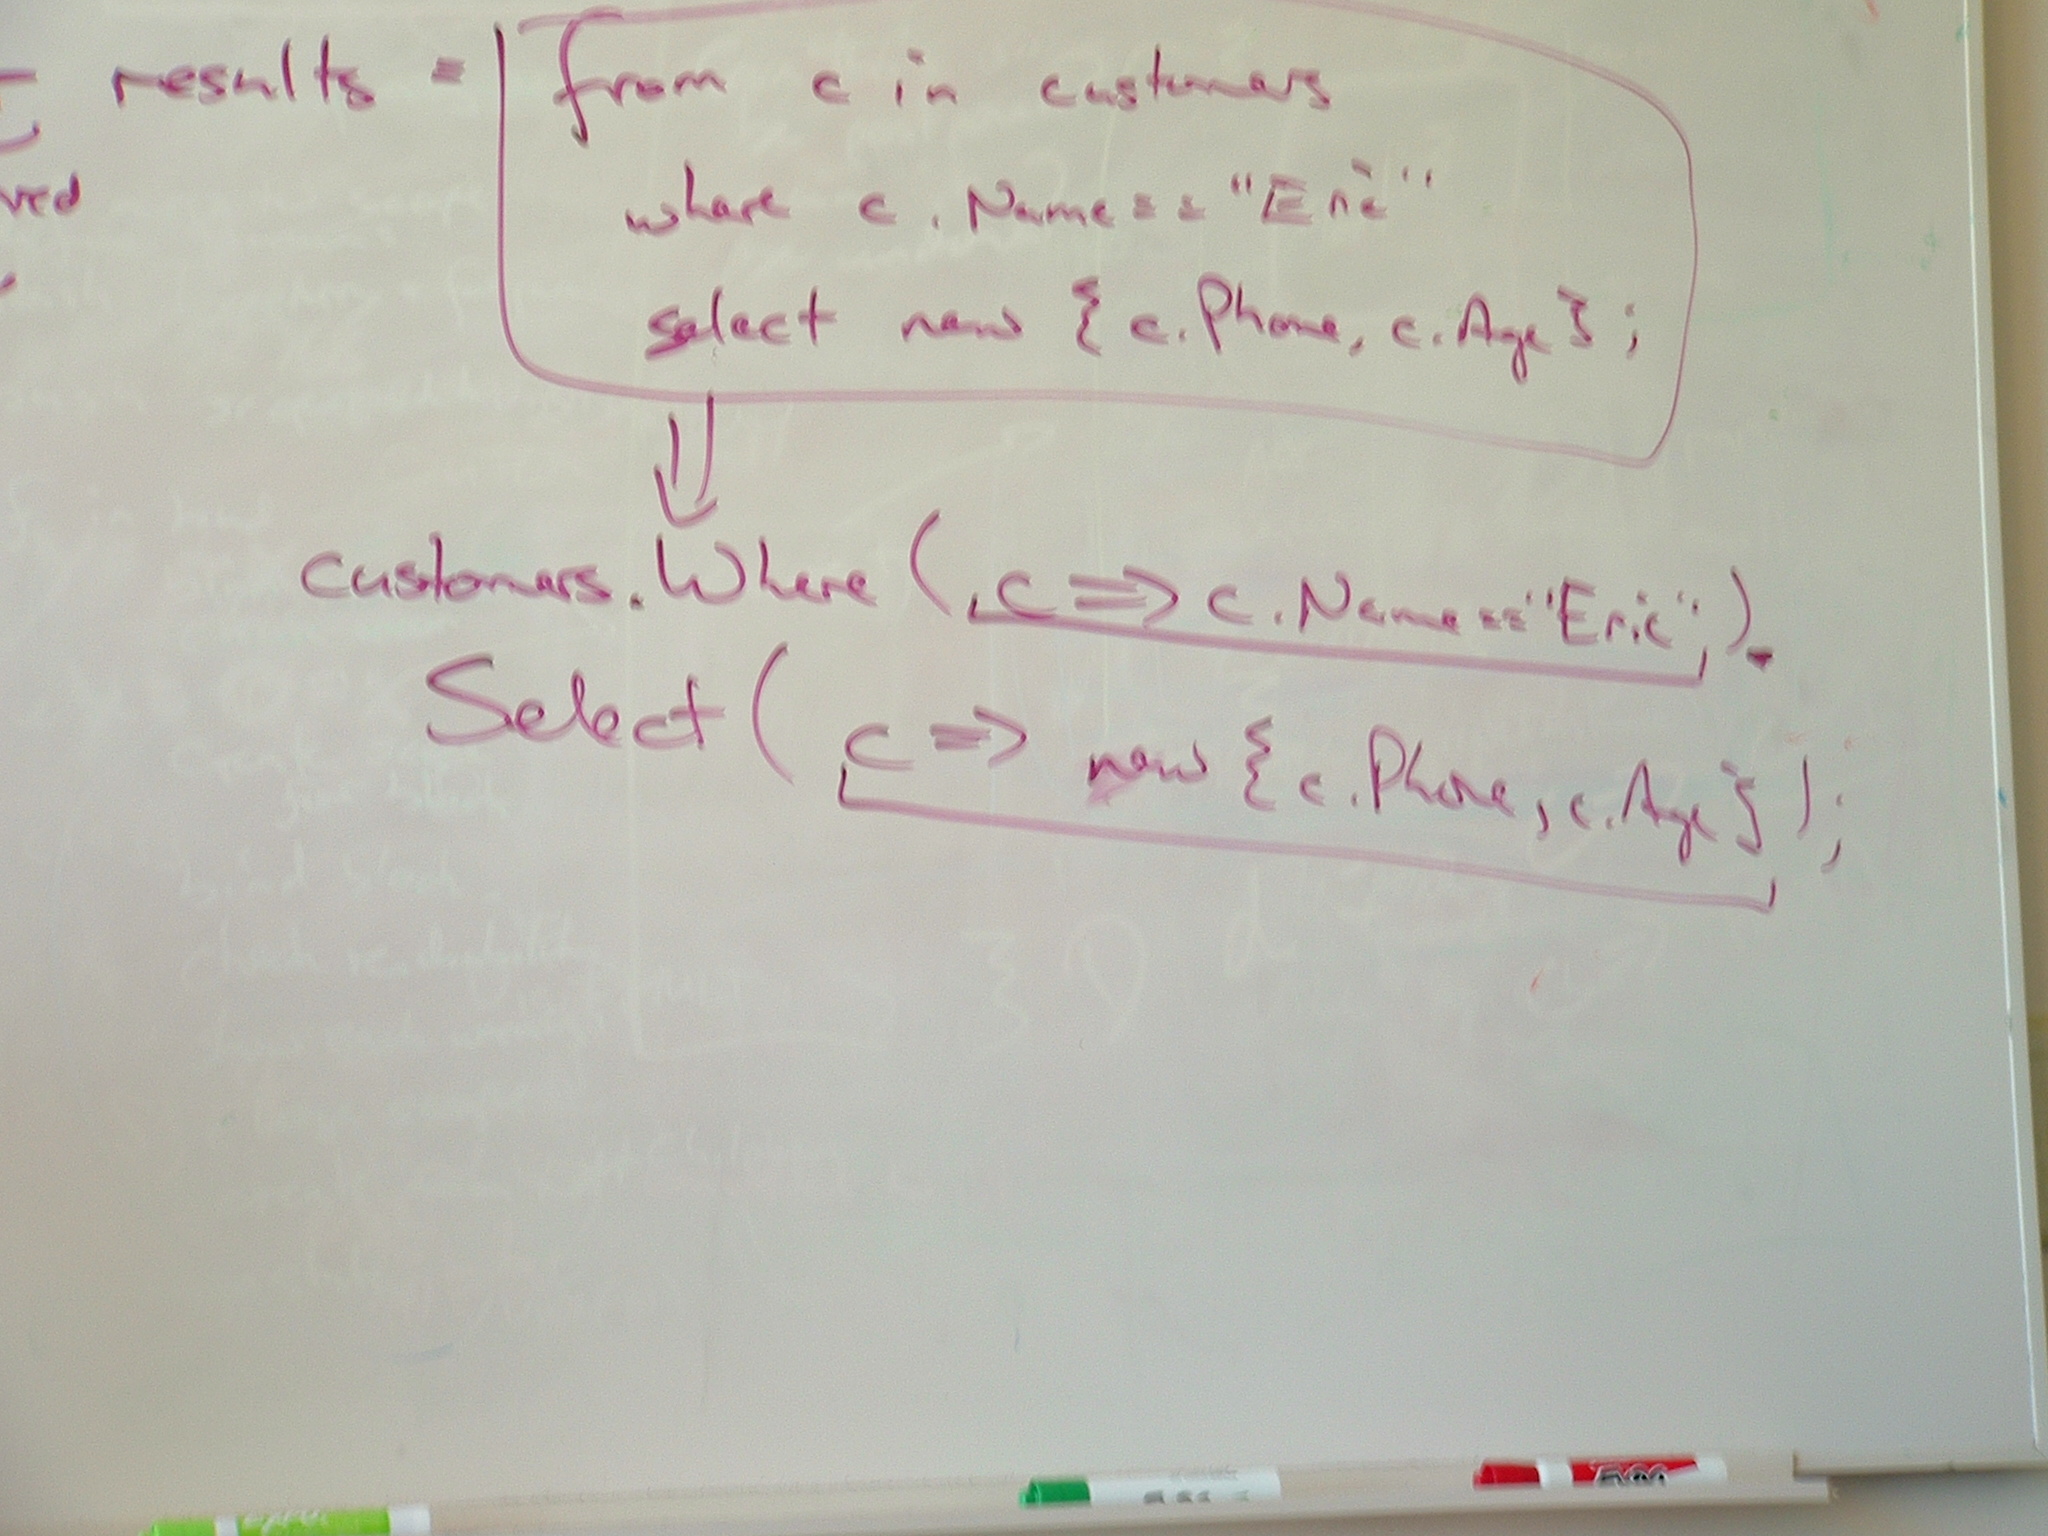 results = from c in customers
ved
where c.Name == "Eric"
select new { c.Phone, c.Age };
customers.Where ( c => c.Name == "Eric" ).
Select ( c => new { c.Phone, c.Age } );